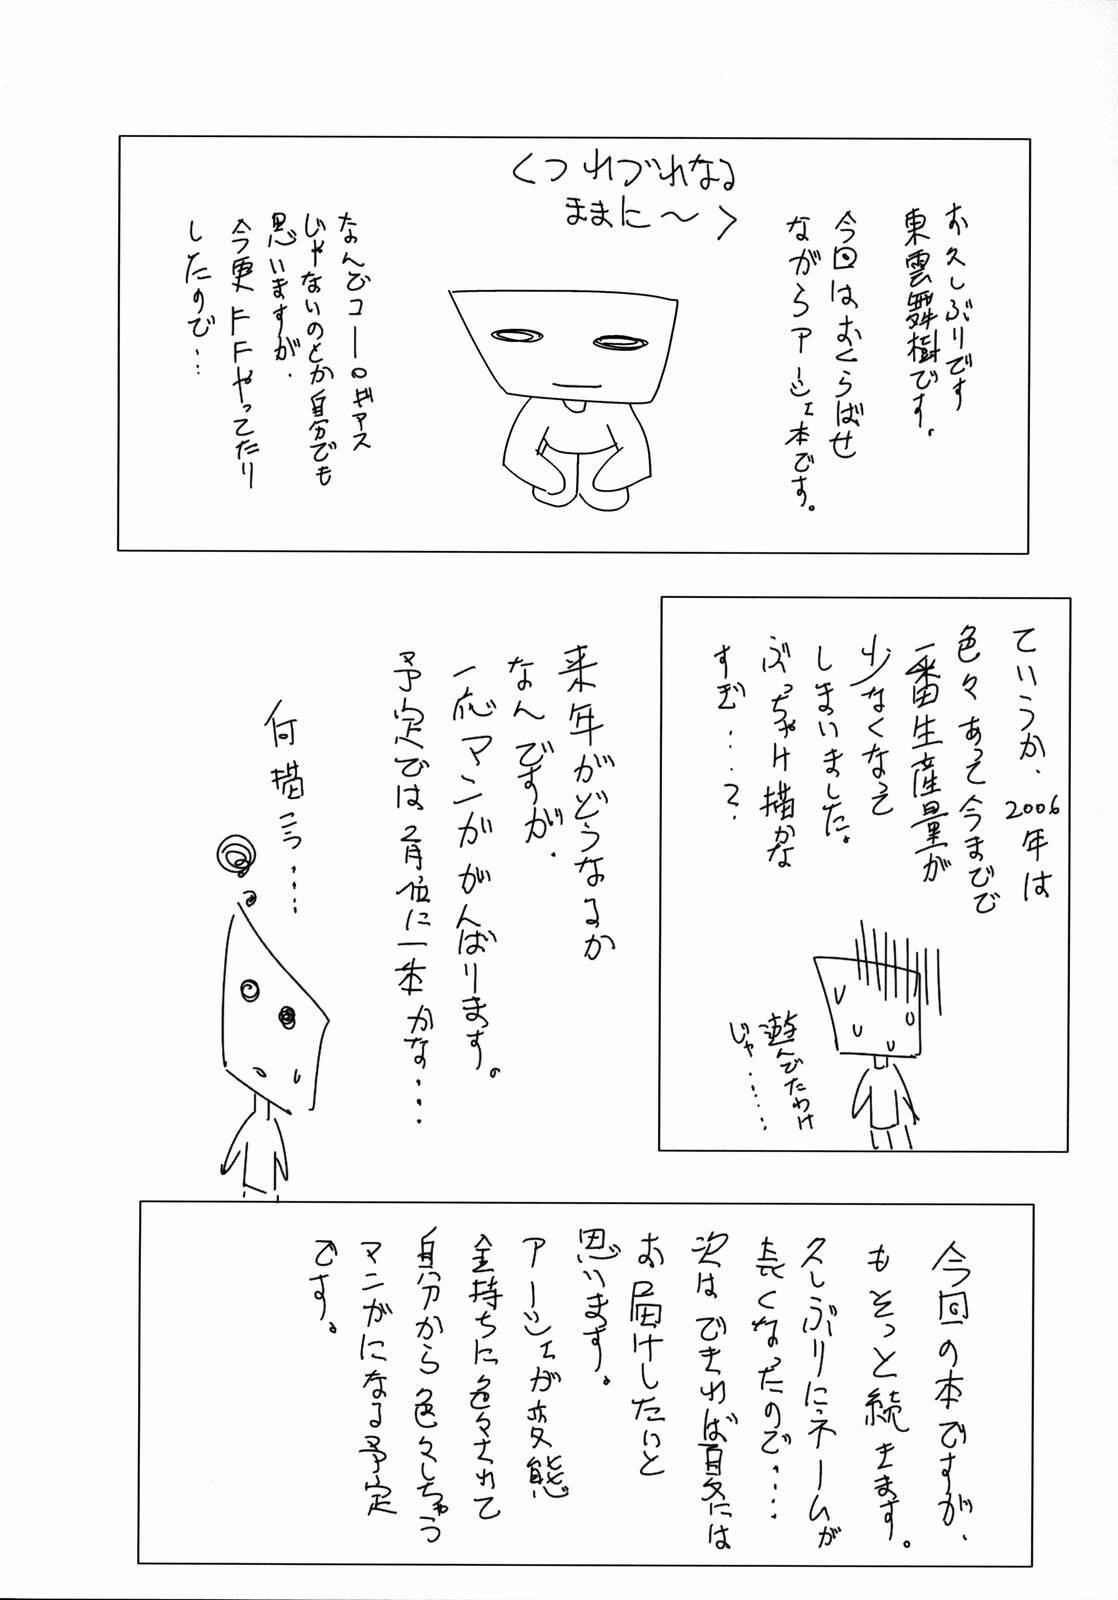 くつれづれなる
ままに～＞
お久しぶりです
東雲舞樹です。
今回はおくらばせ
ながらアーシェ本です。
なんでコードギアス
じゃないのとか自分でも
思いますが、
今更FFやってたり
したので…
ていうか、2006年は
色々あって今までで
一番生産量が
少なくなって
しまいました。
ぶっちゃけ描かな
すぎ…?
遊んでたわけ
じゃ……
来年がどうなるか
なんですが、
一応マンガがんばります。
予定では2月位に一本かな…
何描こう…
今回の本ですが、
もそっと続きます。
久しぶりにネームが
長くなったので…
次はできれば夏には
お届けしたいと
思います。
アーシェが変態
金持ちに色々されて
自分から色々しちゃう
マンガになる予定
です。